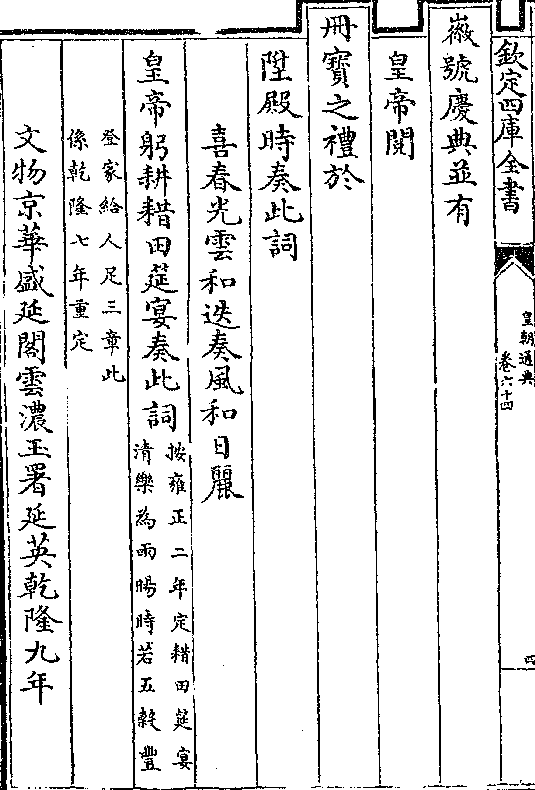 欽定四庫全書
皇朝通典
卷六十四
四
徽號慶典並有
皇帝閱
冊寶之禮於
陞殿時奏此詞
喜春光雲和迭奏風和日麗
皇帝躬耕耤田筵宴奏此詞
按雍正二年定耤田筵宴
清樂為雨暘時若五穀豐
登家給人足三章此
係乾隆七年重定
文物京華盛延閣雲濃玉署延英乾隆九年